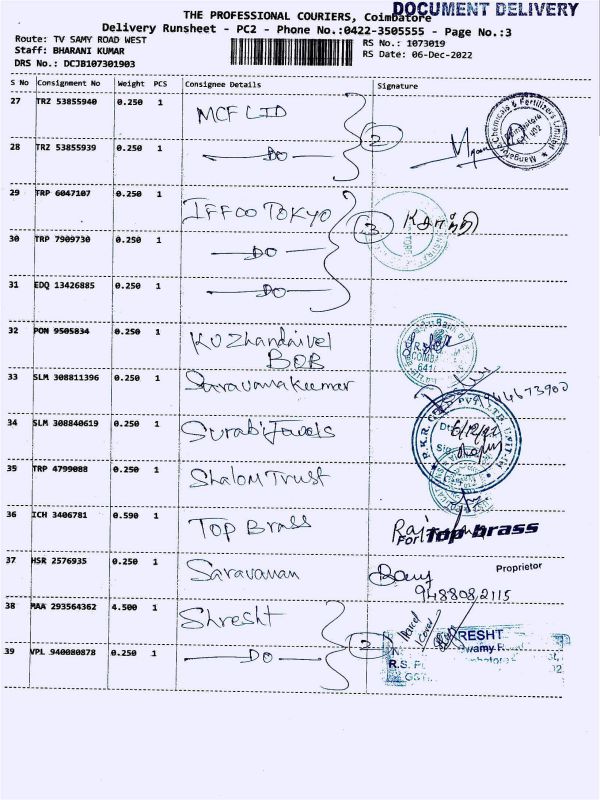 DOCUMENT DELIVERY
THE PROFESSIONAL COURIERS, Coimbatore
Delivery Runsheet - PC2 - Phone No.:0422-3505555 - Page No.:3
Route: TV SAMY ROAD WEST
RS No.: 1073019
Staff: BHARANI KUMAR
RS Date: 06-Dec-2022
DRS No.: DCJB107301903
S No Consignment No Weight PCS Consignee Details Signature
27 TRZ 53855940 0.250 1 MCF LTD
28 TRZ 53855939 0.250 1 DO 2
Mangalore Chemicals & Fertilizers Limited
29 TRP 6047107 0.250 1 IFFCO TOKYO
30 TRP 7909730 0.250 1 DO 3
31 EDQ 13426885 0.250 1 DO
32 PON 9505834 0.250 1 Kuzhandaivel BOB
33 SLM 308811396 0.250 1 Saravanakumar
34 SLM 308840619 0.250 1 Surabi Jewels
6/12/22
35 TRP 4799088 0.250 1 Shalom Trust
36 ICH 3406781 0.590 1 TOP BRASS
For Top brass
Proprietor
37 HSR 2576935 0.250 1 Saravanan
9488082115
38 MAA 293564362 4.500 1 Shresht
39 VPL 940080878 0.250 1 DO 2
RESHT
R.S.